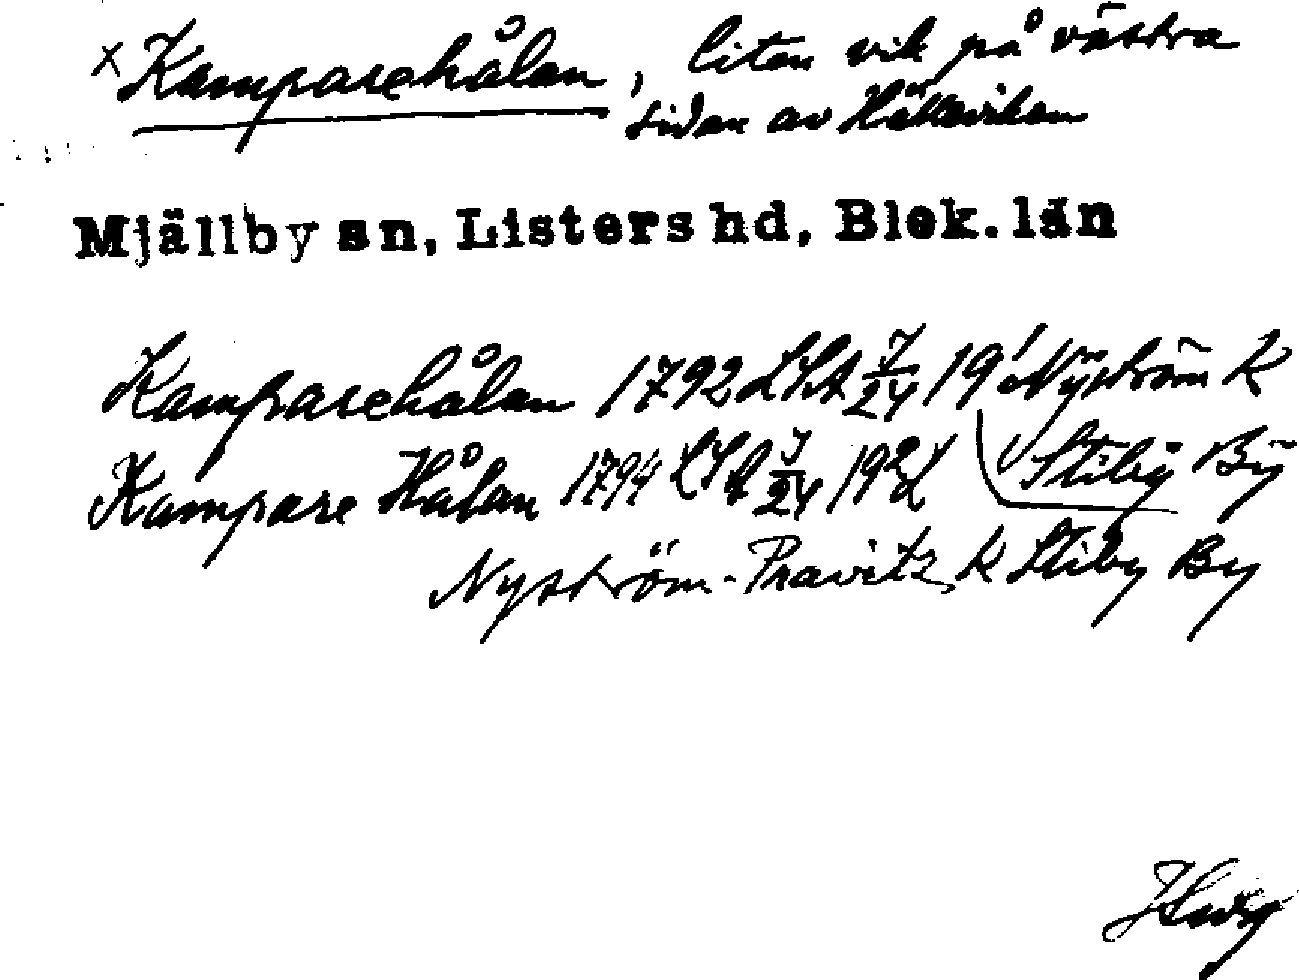 x Kamparehålan, liten vik på västra
sidan av Hälleviken
Mjällby sn, Listers hd, Blek. län
Kamparehålan 1792 LSA 7/24 19 Nyström K
Kampare Hålan 1794 LSA 7/24 19 Stiby By
Nyström-Pravitz K Stiby By